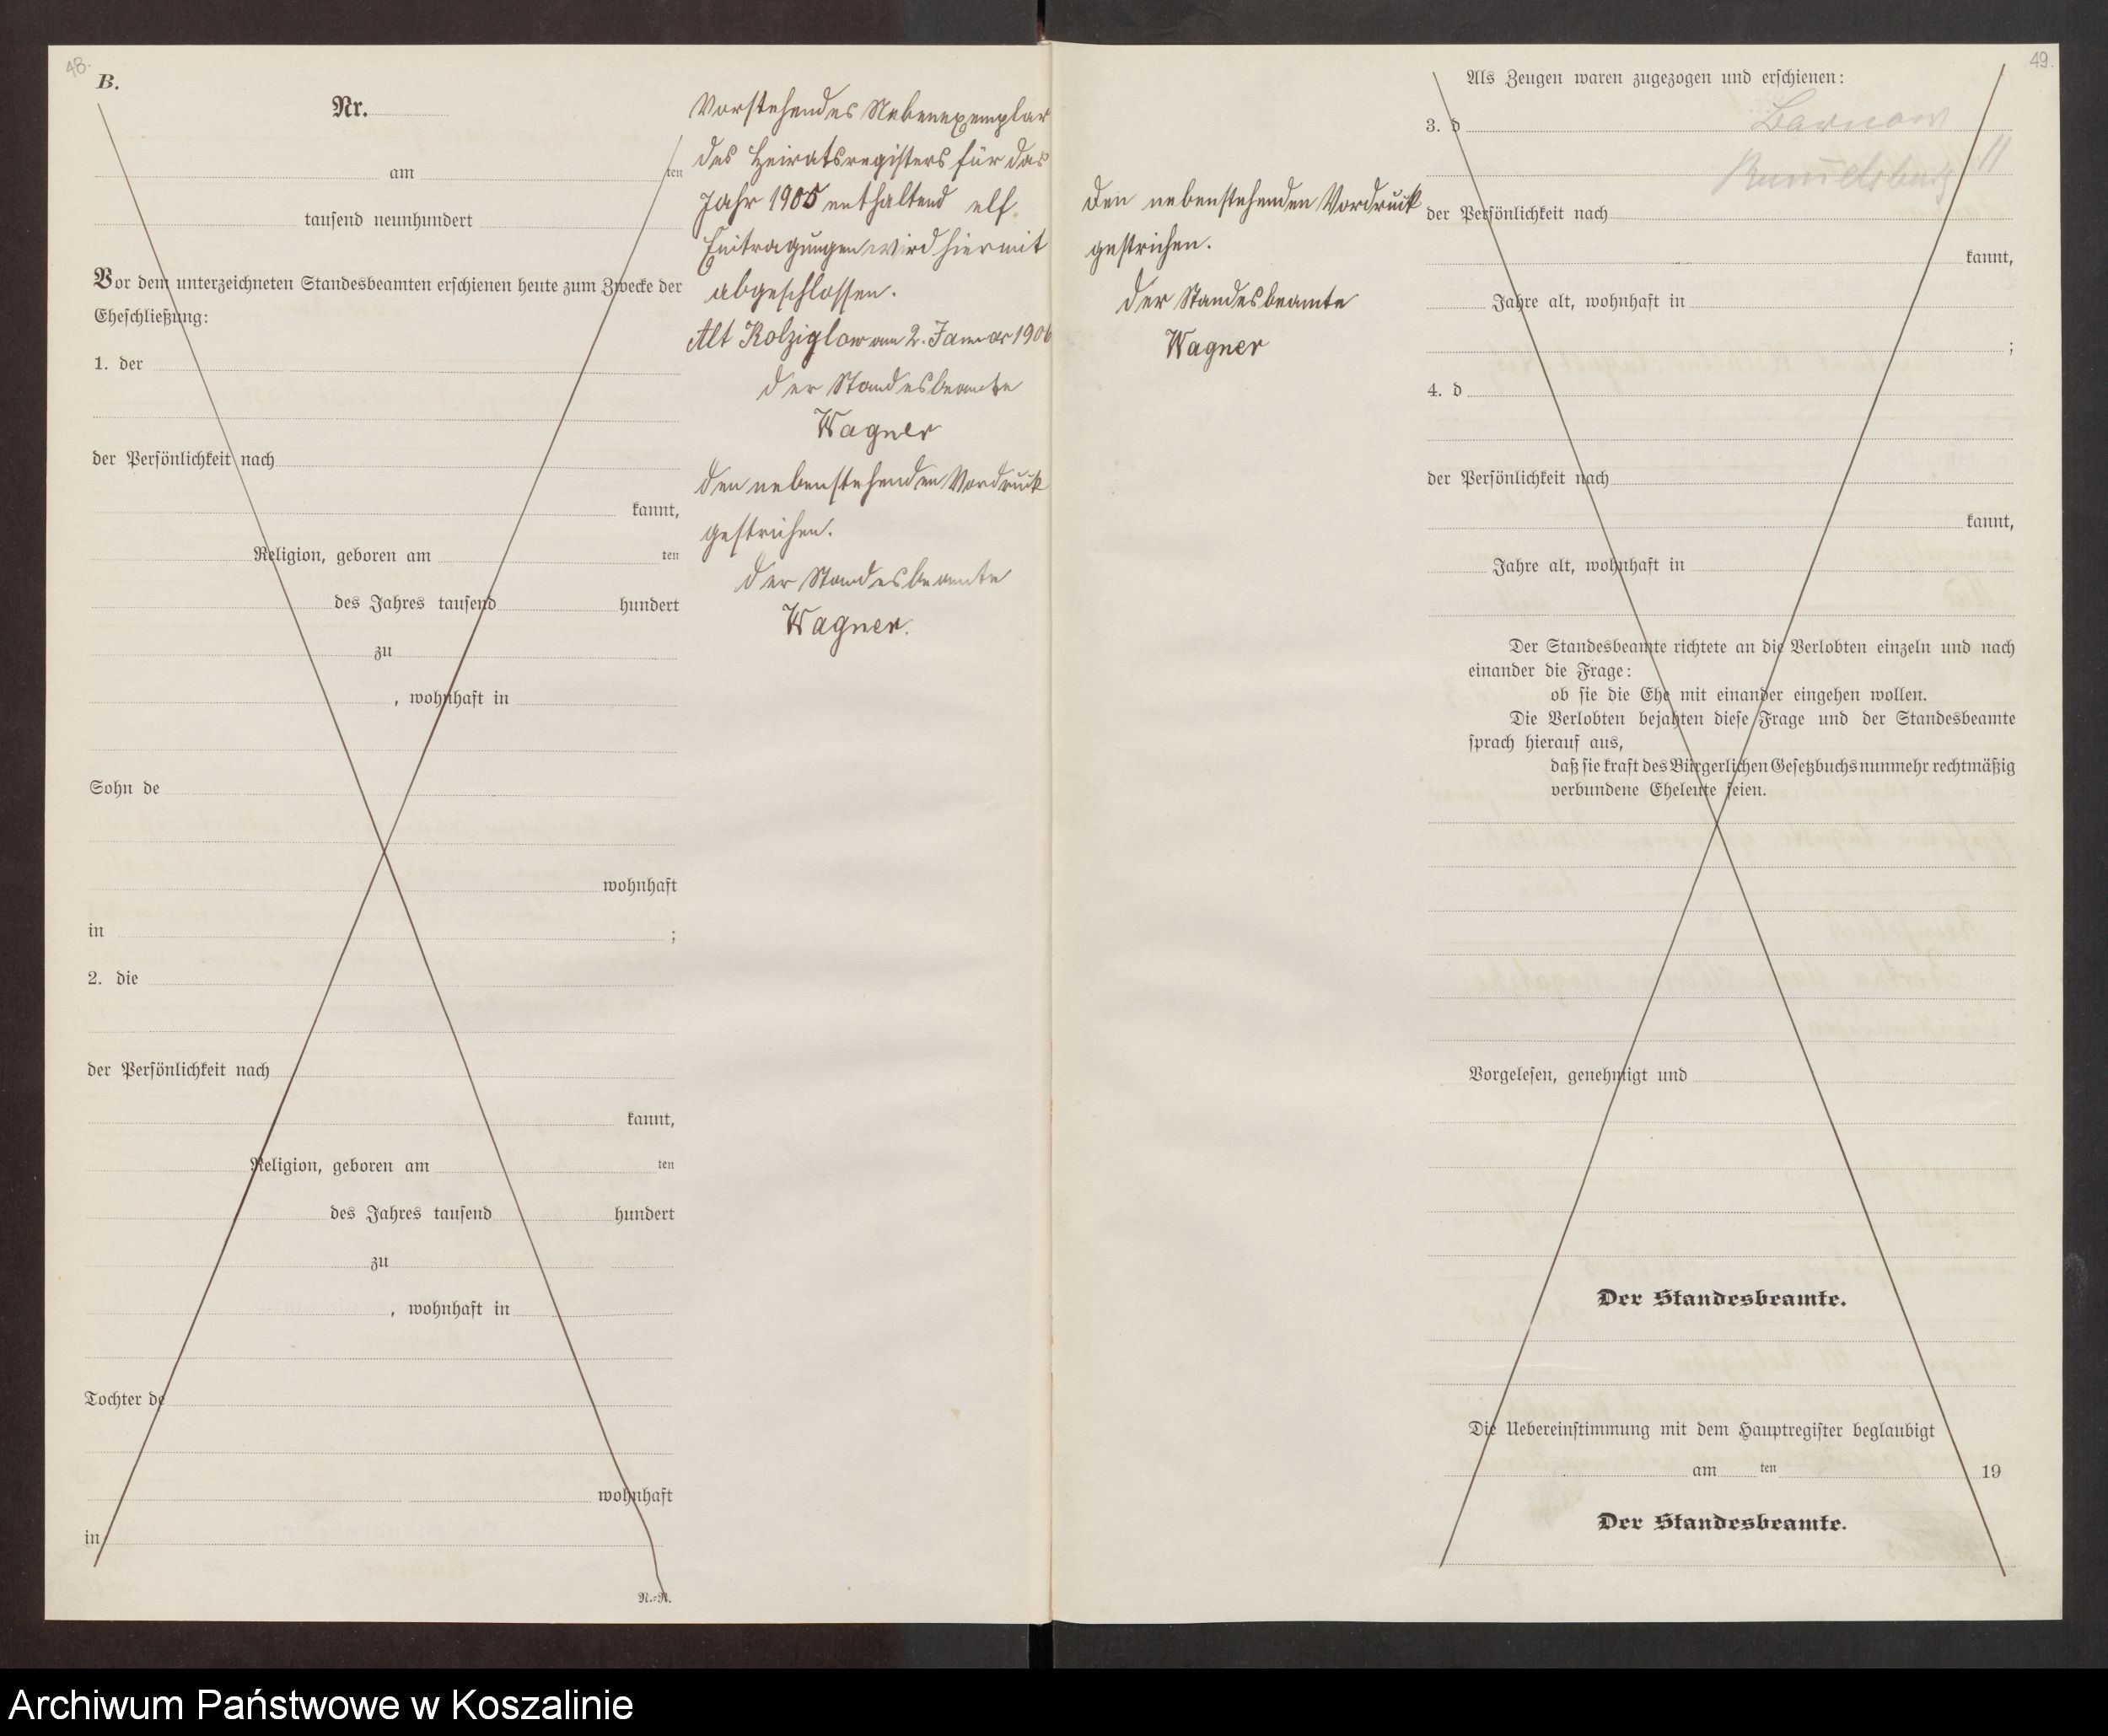 48.
B.
Nr.
am ten
tausend neunhundert
Vor dem unterzeichneten Standesbeamten erschienen heute zum Zwecke der
Eheschließung:
1. der
der Persönlichkeit nach
kannt,
Religion, geboren am ten
des Jahres tausend hundert
zu
, wohnhaft in
Sohn de
wohnhaft
in ;
2. die
der Persönlichkeit nach
kannt,
Religion, geboren am ten
des Jahres tausend hundert
zu
, wohnhaft in
Tochter de
wohnhaft
in
N.-R.
Vorstehendes Nebenexemplar
des Heiratsregisters für das
Jahr 1905 enthaltend elf
Eintragungen wird hiermit
abgeschlossen.
Alt Kolziglow am 2. Januar 1906
Der Standesbeamte
Wagner
Den nebenstehenden Vordruck
gestrichen.
Der Standesbeamte
Wagner.
Den nebenstehenden Vordruck
gestrichen.
Der Standesbeamte
Wagner
49.
Als Zeugen waren zugezogen und erschienen:
Barnow
3. d
Rummelsburg 11
der Persönlichkeit nach
kannt,
Jahre alt, wohnhaft in
;
4. d
der Persönlichkeit nach
kannt,
Jahre alt, wohnhaft in
Der Standesbeamte richtete an die Verlobten einzeln und nach
einander die Frage:
ob sie die Ehe mit einander eingehen wollen.
Die Verlobten bejahten diese Frage und der Standesbeamte
sprach hierauf aus,
daß sie kraft des Bürgerlichen Gesetzbuchs nunmehr rechtmäßig
verbundene Eheleute seien.
Vorgelesen, genehmigt und
Der Standesbeamte.
Die Uebereinstimmung mit dem Hauptregister beglaubigt
am ten 19
Der Standesbeamte.
Archiwum Państwowe w Koszalinie